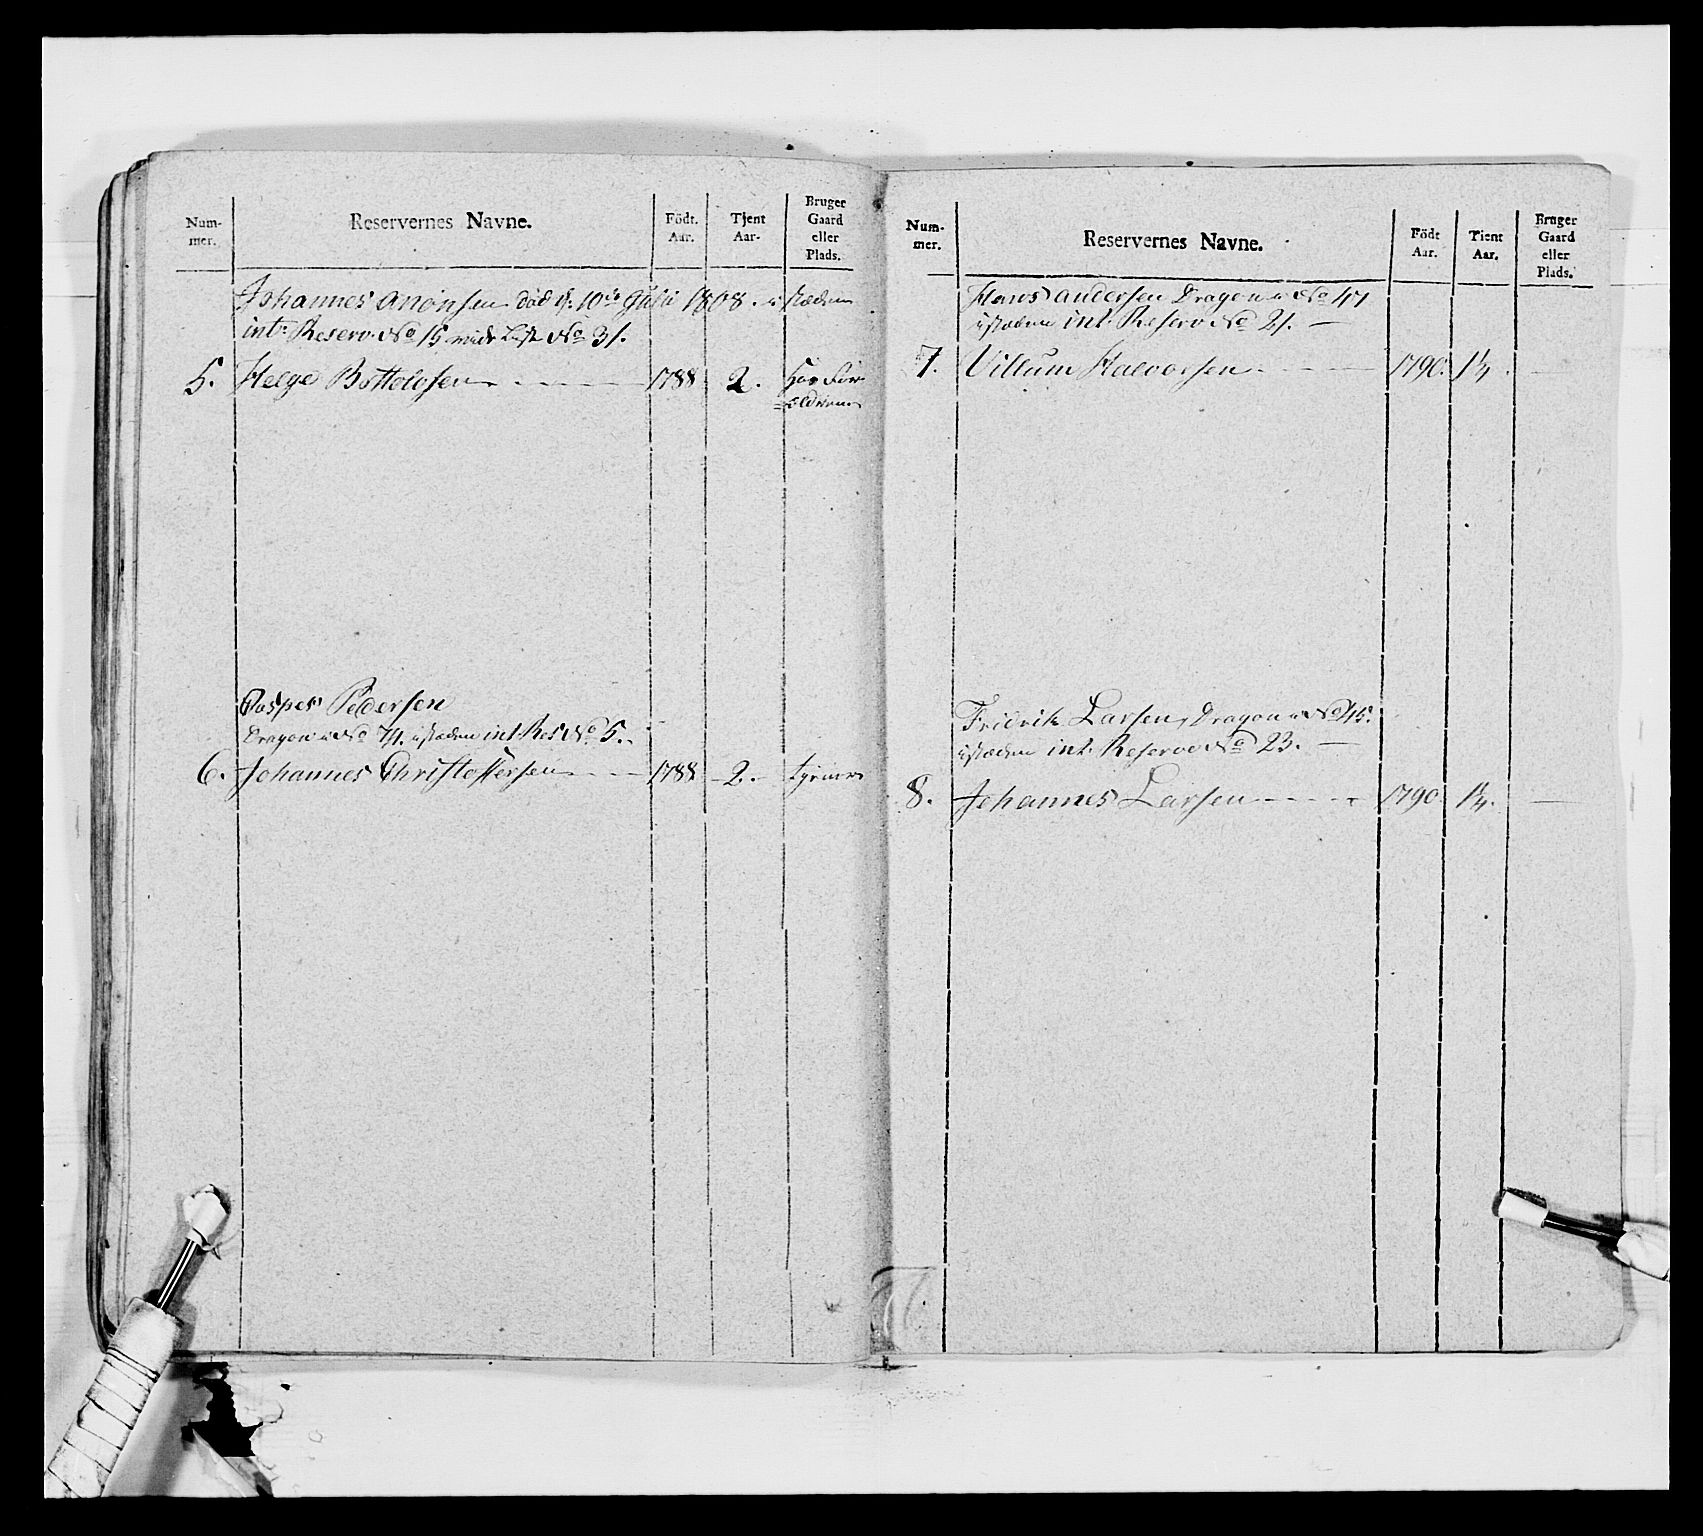 Num-
mer.
Reservernes Navne.
Födt.
Aar.
Tjent
Aar.
Bruger
Gaard
eller
Plads.
Johannes død d: 10de Julii 1808. i stæden
int: Reserv. No 15 vide Liste No 31.
5. Helge Bottolvsen 1788 2. Hos For-
ældrene
Jasper Pedersen
Dragon No 71. i stæden int: Res No 5.
6. Johannes Christoffersen 1788 2. tjener
Num-
mer.
Reservernes Navne.
Födt
Aar.
Tient
Aar.
Bruger
Gaard
eller
Plads.
Hans Andersen Dragon No 47
istæden int. Reserv No 21.
7. Villum Halvorsen 1790. 1¼
Fridrik Larsen, Dragon No 45.
istæden int. Reserve No 23.
8. Johannes Larsen 1790. 1¼.